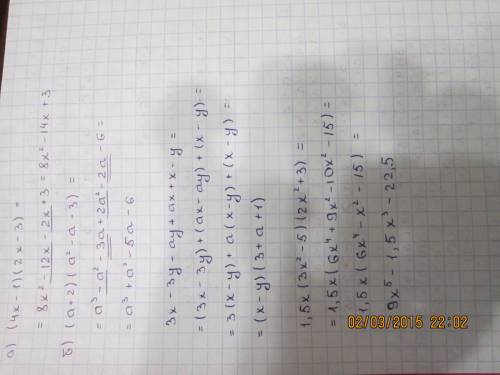 а) (4x-1)(2x-3) =
= 8x² -12x - 2x + 3 = 8x² - 14x + 3
б) (a+2)(a² - a - 3) =
= a³ - a² - 3a + 2a² - 2a - 6 =
= a³ + a² - 5a - 6
3x - 3y - ay + ax + x - y =
= (3x - 3y) + (ax - ay) + (x - y) =
= 3(x-y) + a(x-y) + (x-y) =
= (x-y)(3+a+1)
1,5x(3x² - 5)(2x² + 3) =
= 1,5x(6x⁴ + 9x² - 10x² - 15) =
1,5x(6x⁴ - x² - 15) =
9x⁵ - 1,5x³ - 22,5
02/03/2015 22:02